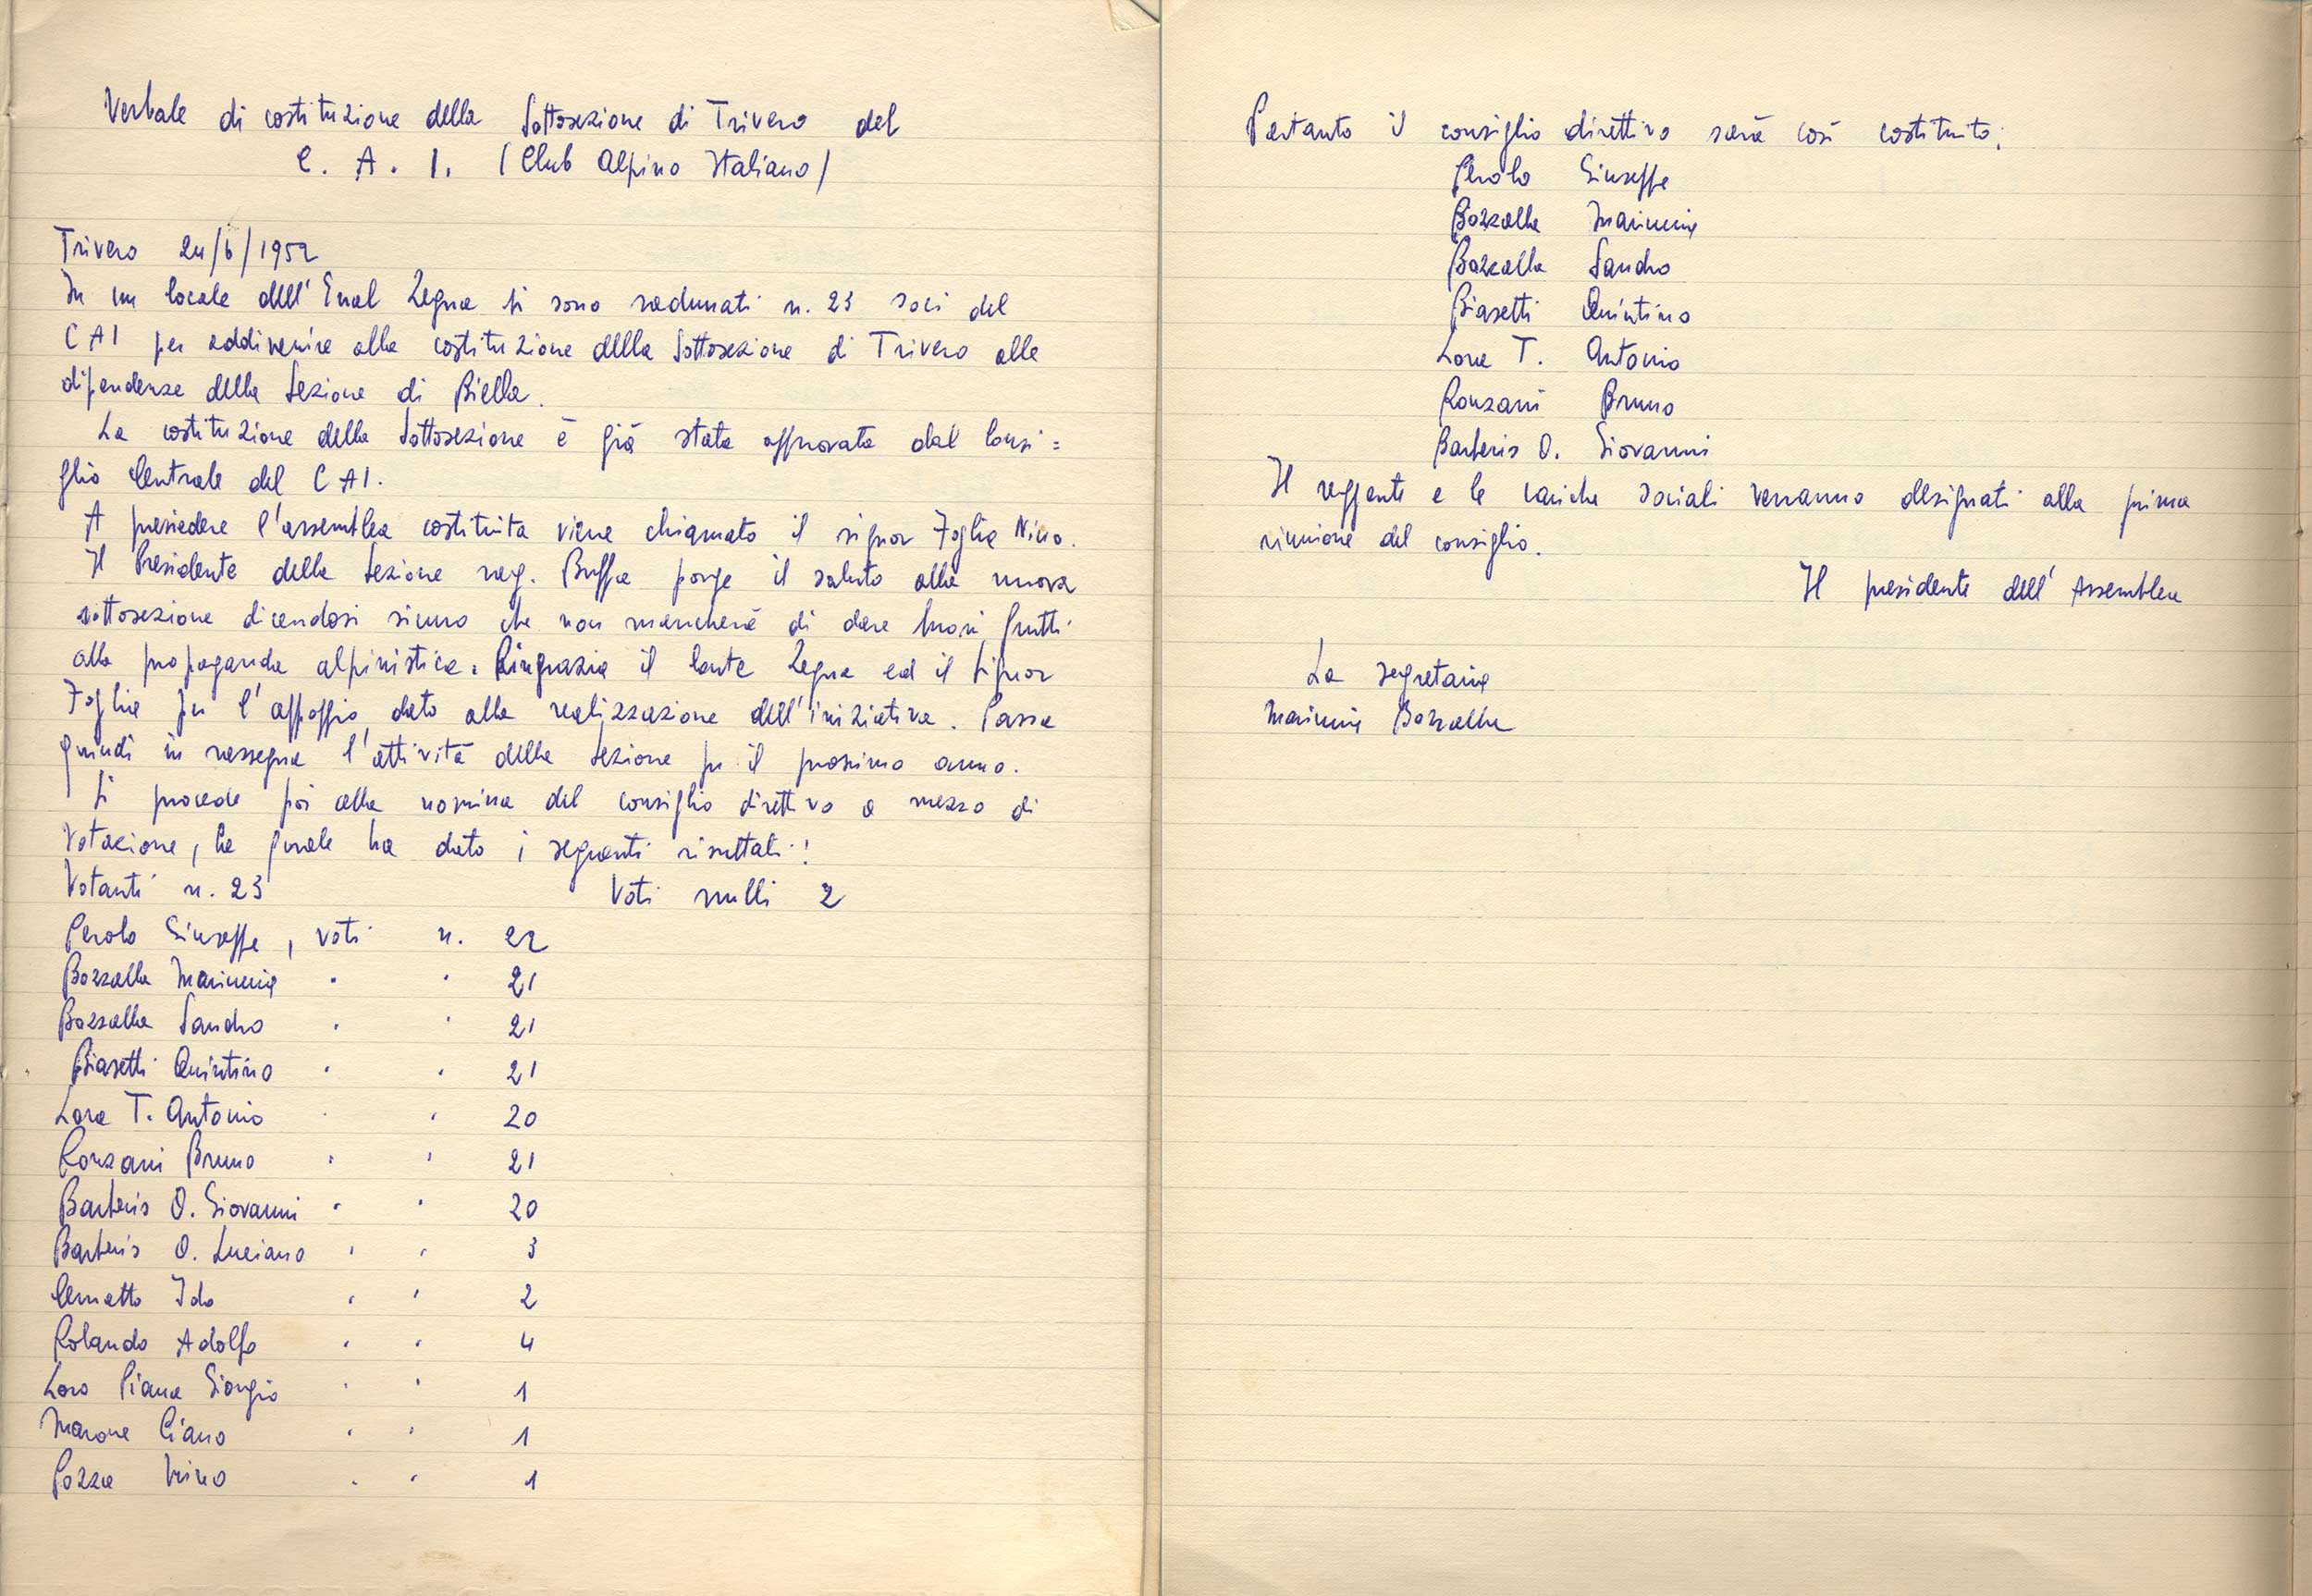 Verbale di costituzione della Sottosezione di Trivero del
C. A. I. (Club Alpino Italiano)
Trivero 24/6/1952
In un locale dell'Enal Zegna si sono radunati n. 23 soci del
CAI per addivenire alla costituzione della Sottosezione di Trivero alle
dipendenze della Sezione di Biella.
La costituzione della Sottosezione è già stata approvata dal Consi=
glio Centrale del CAI.
A presiedere l'assemblea costituita viene chiamato il signor Foglia Nino.
Il Presidente della Sezione rag. Buffa porge il saluto alla nuova
sottosezione dicendosi sicuro che non mancherà di dare buoni frutti
alla propaganda alpinistica. Ringrazia il Conte Zegna ed il Signor
Foglia per l'appoggio dato alla realizzazione dell'iniziativa. Passa
quindi in rassegna l'attività della Sezione per il prossimo anno.
Si procede poi alla nomina del consiglio direttivo a mezzo di
Votazione, la quale ha dato i seguenti risultati:
Votanti n. 23 Voti nulli 2
Perolo Giuseppe, voti n. 22
Bozzalla Marinella " " 21
Bozzalla Sandro " " 21
Biasetti Quintino " " 21
Lora T. Antonio " " 20
Ronzani Bruno " " 21
Barberis O. Giovanni " " 20
Barberis O. Luciano " " 3
Cerruti Ido " " 2
Rolando Adolfo " " 4
Loro Piana Giorgio " " 1
Marone Ciano " " 1
Pozza " " 1
Pertanto il consiglio direttivo sarà così costituito:
Perolo Giuseppe
Bozzalla
Bozzalla Sandro
Biasetti Quintino
Lora T. Antonio
Ronzani Bruno
Barberis O. Giovanni
Il reggente e le cariche sociali verranno designati alla prima
riunione del consiglio.
Il presidente dell'Assemblea
La segretaria
Bozzalla